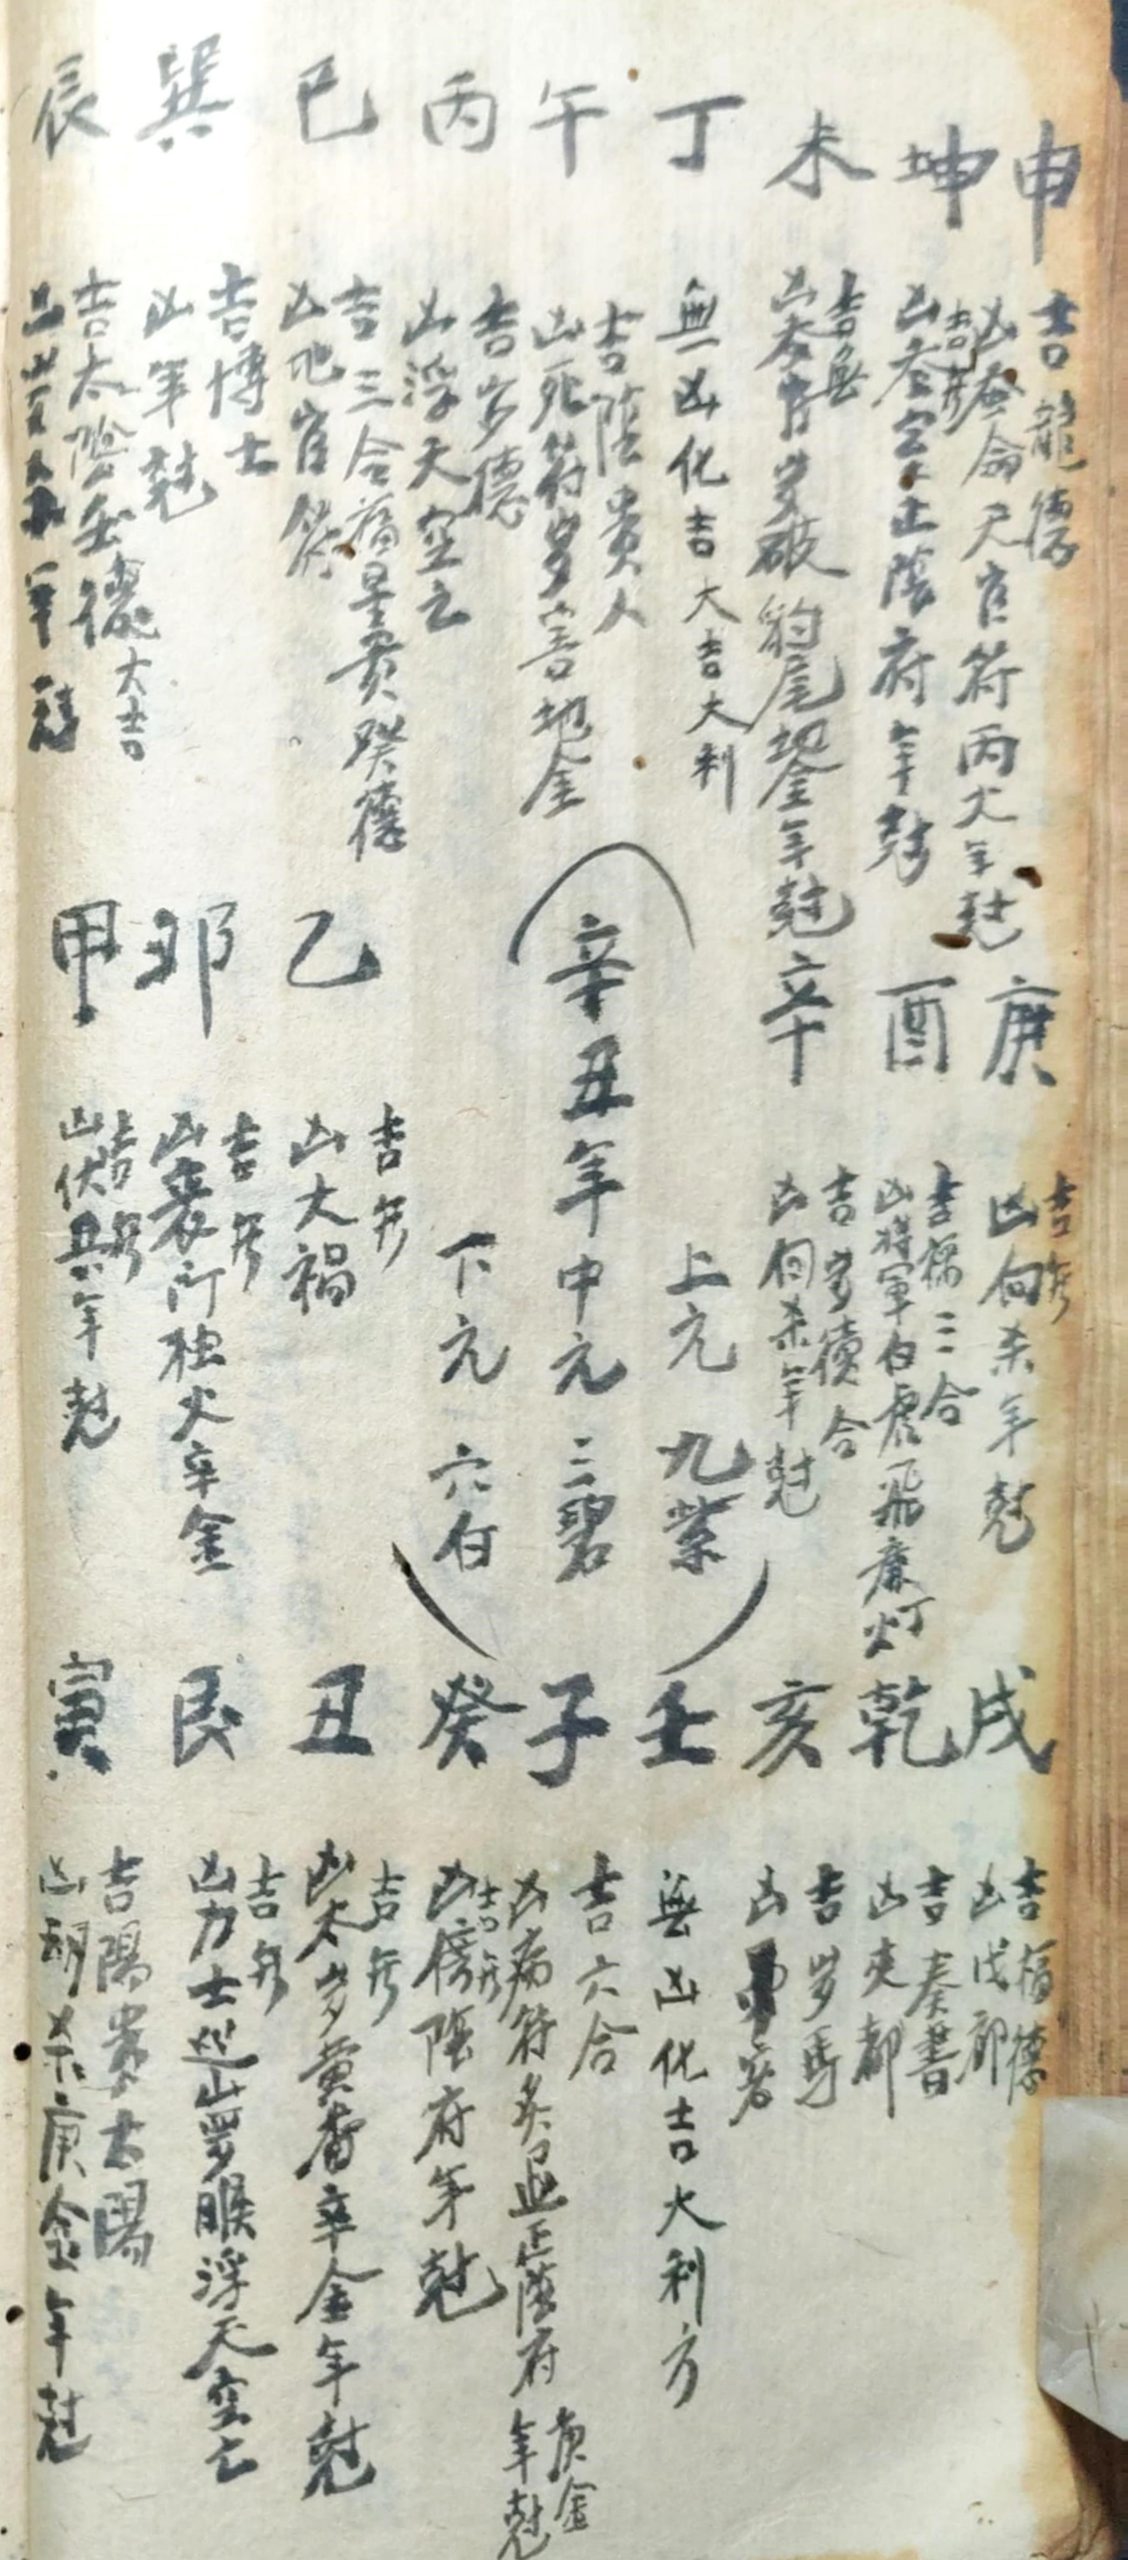 申
吉龍德
凶
天官符丙火年尅
坤
吉旡
凶
正陰府年尅
未
吉無
凶
岁破豹尾
年尅
丁
無凶化吉大吉大利
午
吉陰貴人
凶死符岁害地金
丙
吉岁德
凶浮天空亡
巳
吉三合福星貴癸德
凶地官符
巽
吉博士
凶年尅
辰
吉太陰
德大吉
年尅
庚
吉旡
凶向杀年尅
酉
吉
三合
凶将軍白虎飛廉丁火
辛
吉岁德合
凶向杀年尅
上元 九紫
辛丑年中元 三碧
下元 六白
乙
吉旡
凶大禍
卯
吉旡
凶喪门独火辛金
甲
吉旡
凶伏兵年尅
戌
吉福德
凶
乾
吉奏書
凶
都
亥
吉岁馬
凶
壬
無凶化吉大利方
子
吉六合
凶病符炙退正陰府庚金年尅
癸
吉旡
凶傍陰府年尅
丑
吉旡
凶太岁黄番辛金年尅
艮
吉旡
凶力士巡山罗睺浮天空亡
寅
吉陽貴太陽
凶
杀庚金年尅